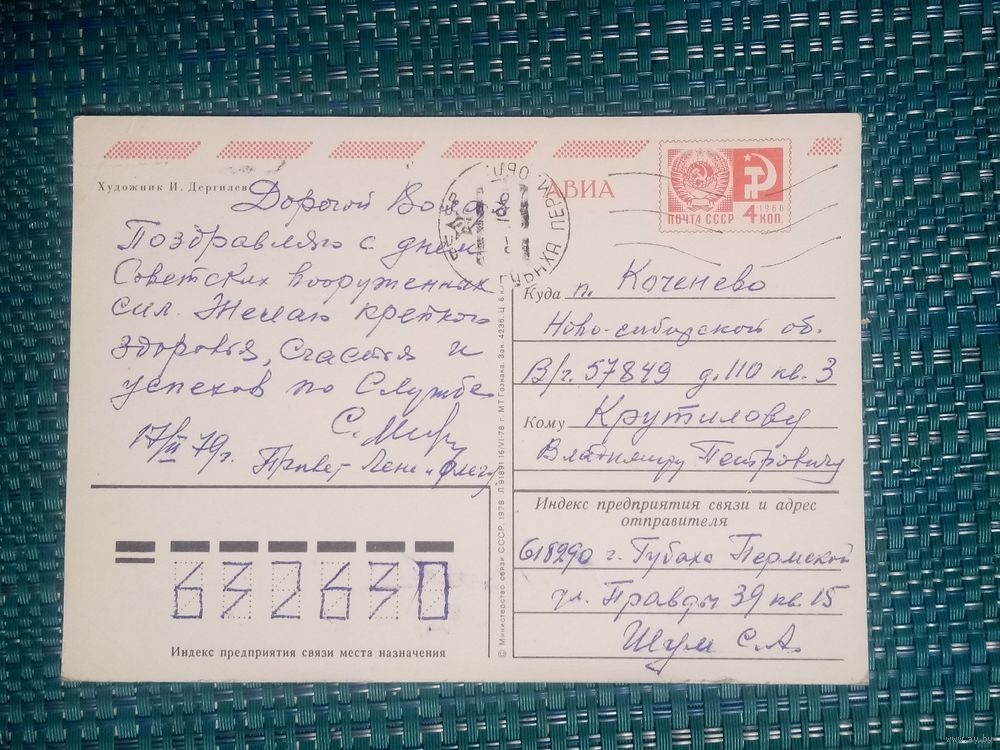 Художник И. Дергилев
АВИА
ПОЧТА СССР
1966
4 КОП.
ГУБАХА ПЕРМ
ОБЛ.
Дорогой Вова
Поздравляю с днем
Советских вооруженных
сил. Желаю крепкого
здоровья, счастья и
успехов по Службе
С.
17/II 79г.
Привет Лене и Олегу
Куда п. Коченево
Ново-сибирской об.
В/ч. 57849 д. 110 кв. 3
Кому Крутилову
Владимиру Петровичу
Индекс предприятия связи и адрес
отправителя
618290 г. Губаха Пермской
ул. Правды 39 кв. 15
Шум С.А.
632630
Индекс предприятия связи места назначения
© Министерство связи СССР, 1978 Л 91891 16/VI-78 г. МТ Гознака. Зак. 4236. Ц. 6 к.
www.ay.by